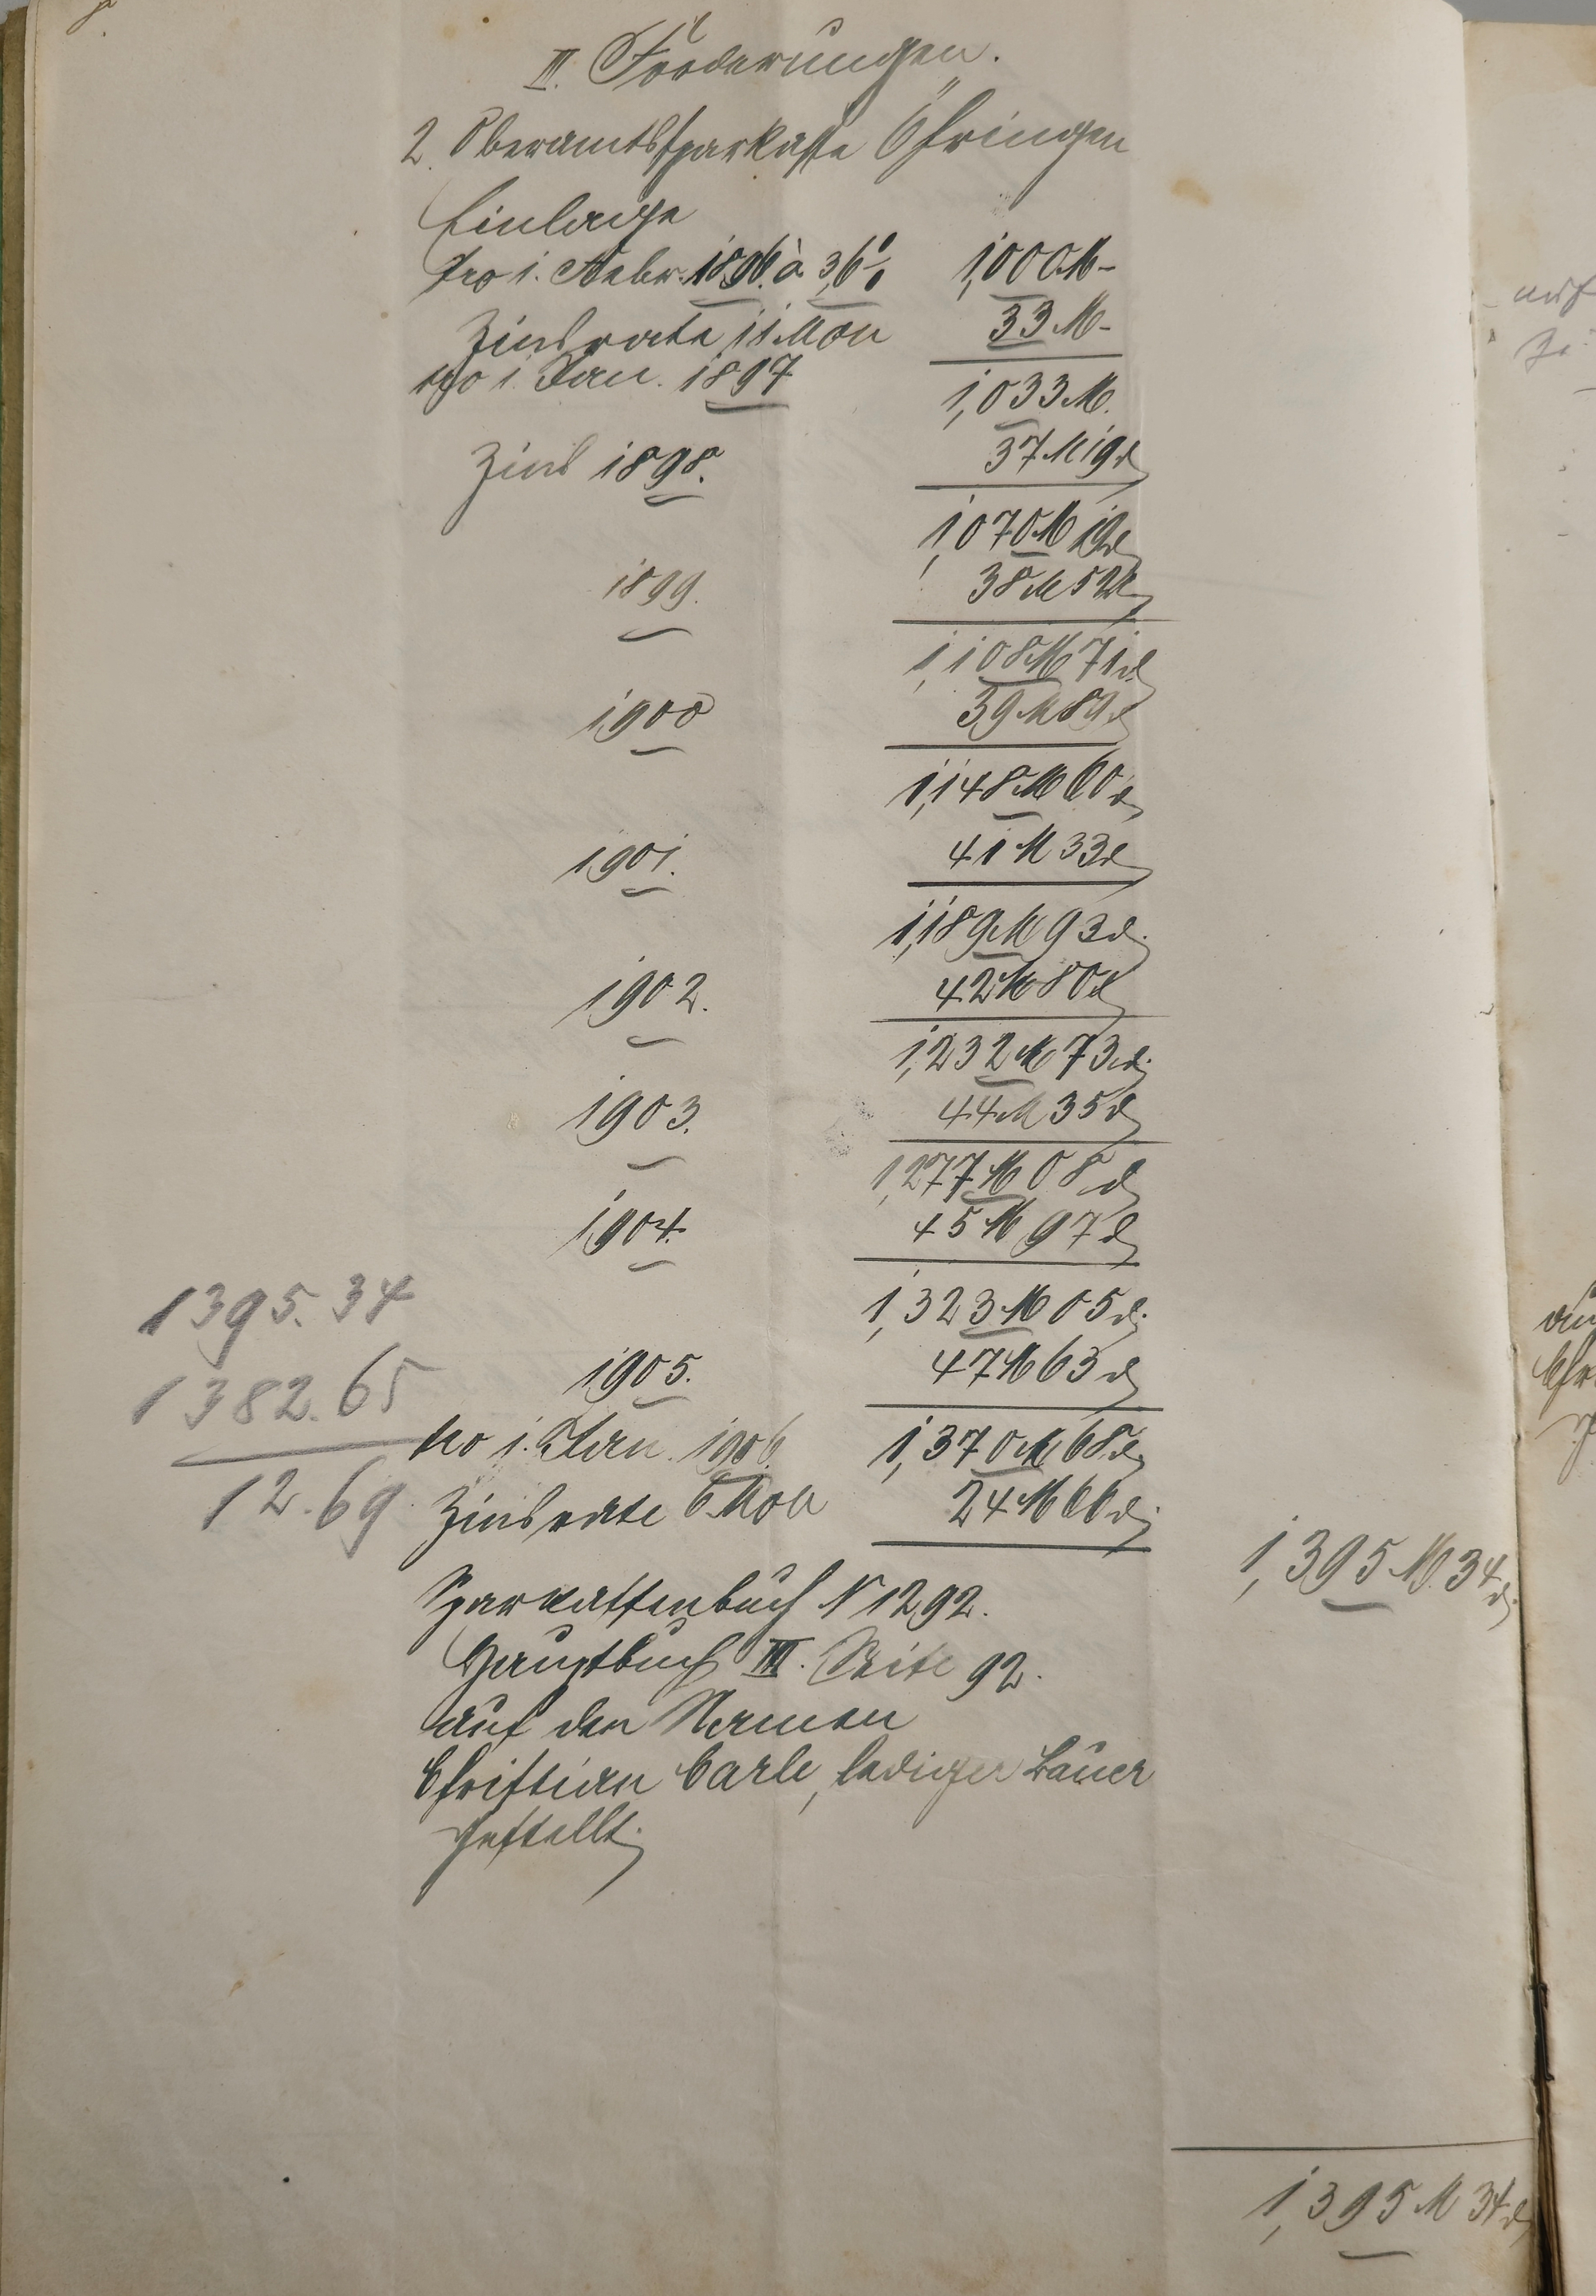 II. Forderungen.
2. Oberamtssparkasse Öhringen
Einlage
pro 1. Febr. 1896. à 3,6% 1,000 M -
Zinsrate 11 Mon 33 M -
pro 1. Jan. 1897 1,033 M.
Zins 1898. 37 M 19 ₰
1,070 M 19 ₰
1899. 38 M 52 ₰
1,108 M 71 ₰
1900 39 M 89 ₰
1,148 M 60 ₰
1901. 41 M 33 ₰
1,189 M 93 ₰
1902. 42 M 80 ₰
1,232 M 73 ₰
1903. 44 M 35 ₰
1,277 M 08 ₰
1904. 45 M 97 ₰
1395.34
1,323 M 05 ₰
1382.65
1905. 47 M 63 ₰
pro 1. Jan. 1906. 1,370 M 68 ₰
12.69
Zinsrate 6 Mon 24 M 66 ₰
1,395 M. 34 ₰
Sparkassenbuch N 1292.
Hauptbuch III. Seite 92.
auf den Namen
Christian Carle, lediger Bauer
gestellt.
1,395 M 34 ₰